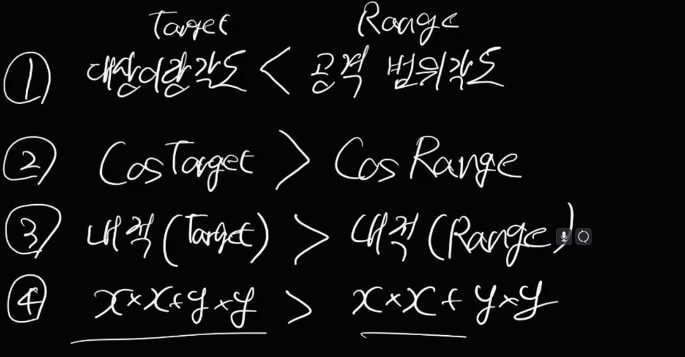 Target Range
① 대상이랑각도 < 공격 범위각도
② CosTarget > Cos Range
③ 내적(Target) > 내적(Range)
④ x×x+y×y > x×x+y×y